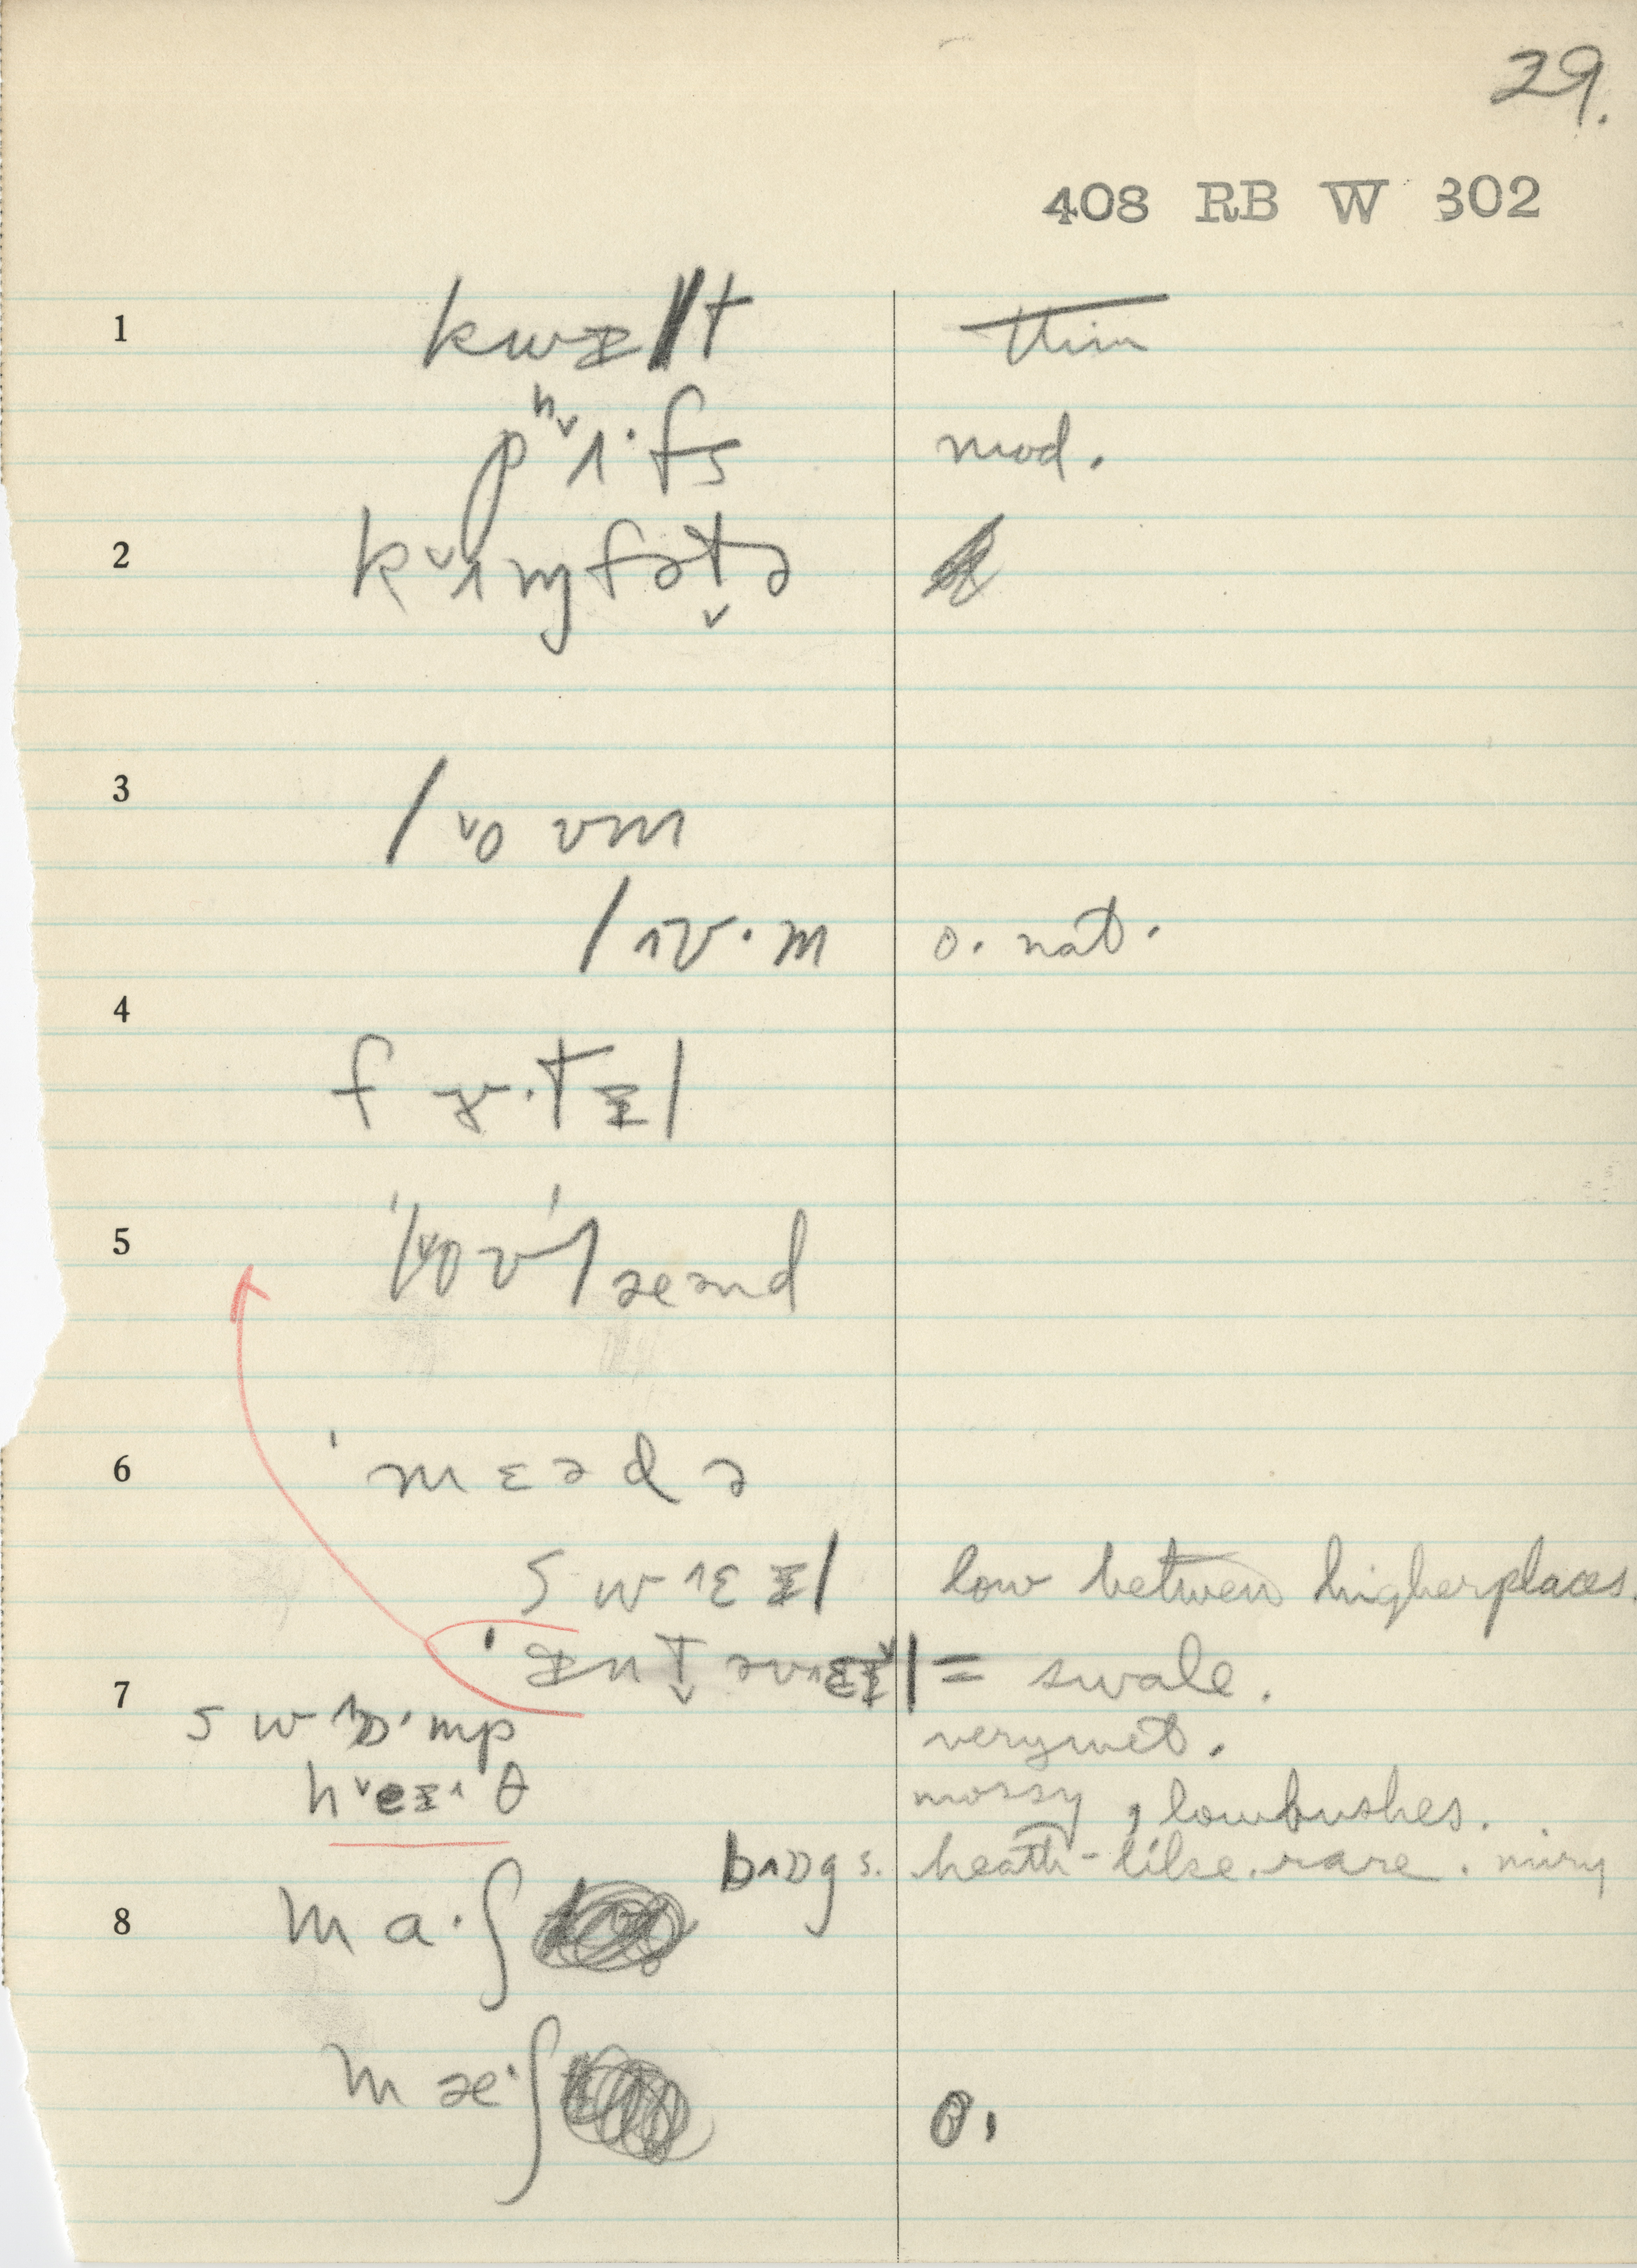 29.
408 RB W 302
1 kwᵻlt thin
pʰ˅ɪ·fs mod.
2 k˅ɪmfətə
3 l˅o ʊm
l˄ʊ·m o. nat.
4 f ɚ·tᵻl
5 'l˅oʊ'læənd
6 'mɛədə
sw˄ɛᵻl low between higher places.
'ᵻnt̬əv˄ɛᵻ˅l = swale.
7 sw˄ɒ·mp very wet.
h˅eᵻ˄θ mossy, low bushes.
b˄ɒgs. heath-like. rare. miry
8 ma·ʃ
mæ·ʃ o.